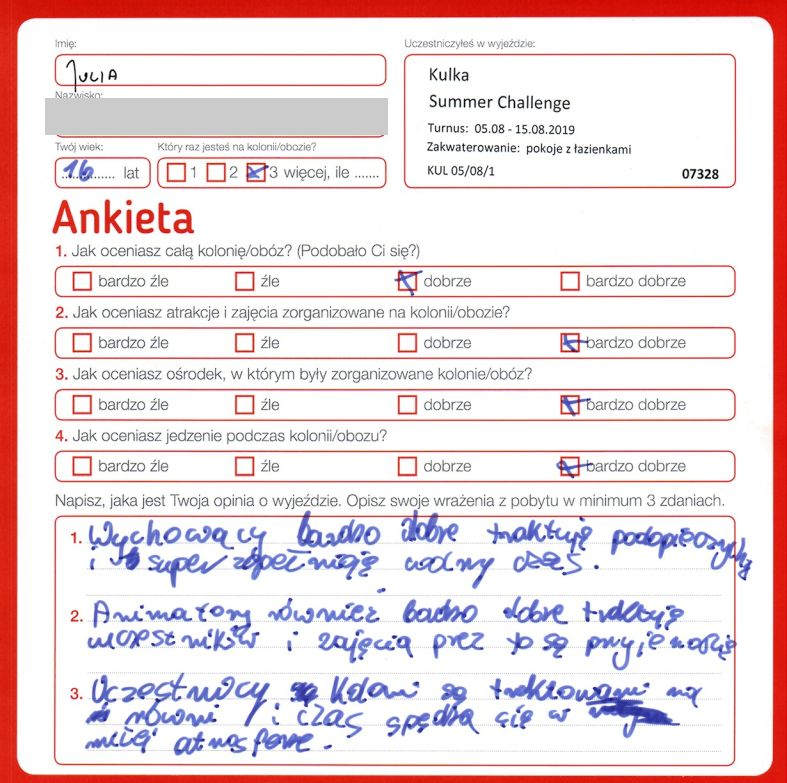 Imię:
Uczestniczyłeś w wyjeździe:
JULIA
Kulka
Nazwisko:
Summer Challenge
Turnus: 05.08 - 15.08.2019
Twój wiek:
Który raz jesteś na kolonii/obozie?
Zakwaterowanie: pokoje z łazienkami
16 lat
1 2 3 więcej, ile .......
KUL 05/08/1
07328
Ankieta
1. Jak oceniasz całą kolonię/obóz? (Podobało Ci się?)
bardzo źle źle dobrze bardzo dobrze
2. Jak oceniasz atrakcje i zajęcia zorganizowane na kolonii/obozie?
bardzo źle źle dobrze bardzo dobrze
3. Jak oceniasz ośrodek, w którym były zorganizowane kolonie/obóz?
bardzo źle źle dobrze bardzo dobrze
4. Jak oceniasz jedzenie podczas kolonii/obozu?
bardzo źle źle dobrze bardzo dobrze
Napisz, jaka jest Twoja opinia o wyjeździe. Opisz swoje wrażenia z pobytu w minimum 3 zdaniach.
1. Wychowacy bardzo dobre traktują podopiecznych
i super zapełniają wolny czas.
2. Animatorzy również bardzo dobre traktują
uczestników i zajęcia prez to są
3. Uczestnicy są traktowani na
równi i czas spędza się w
miłej atmosferze.